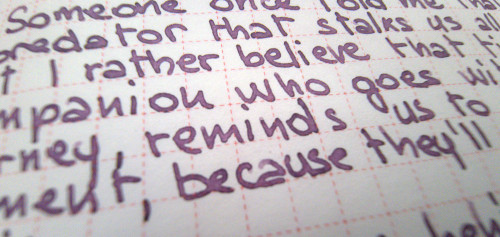 Someone once told me that
predator that stalks us all
I rather believe that
who goes
reminds us to
because they'll